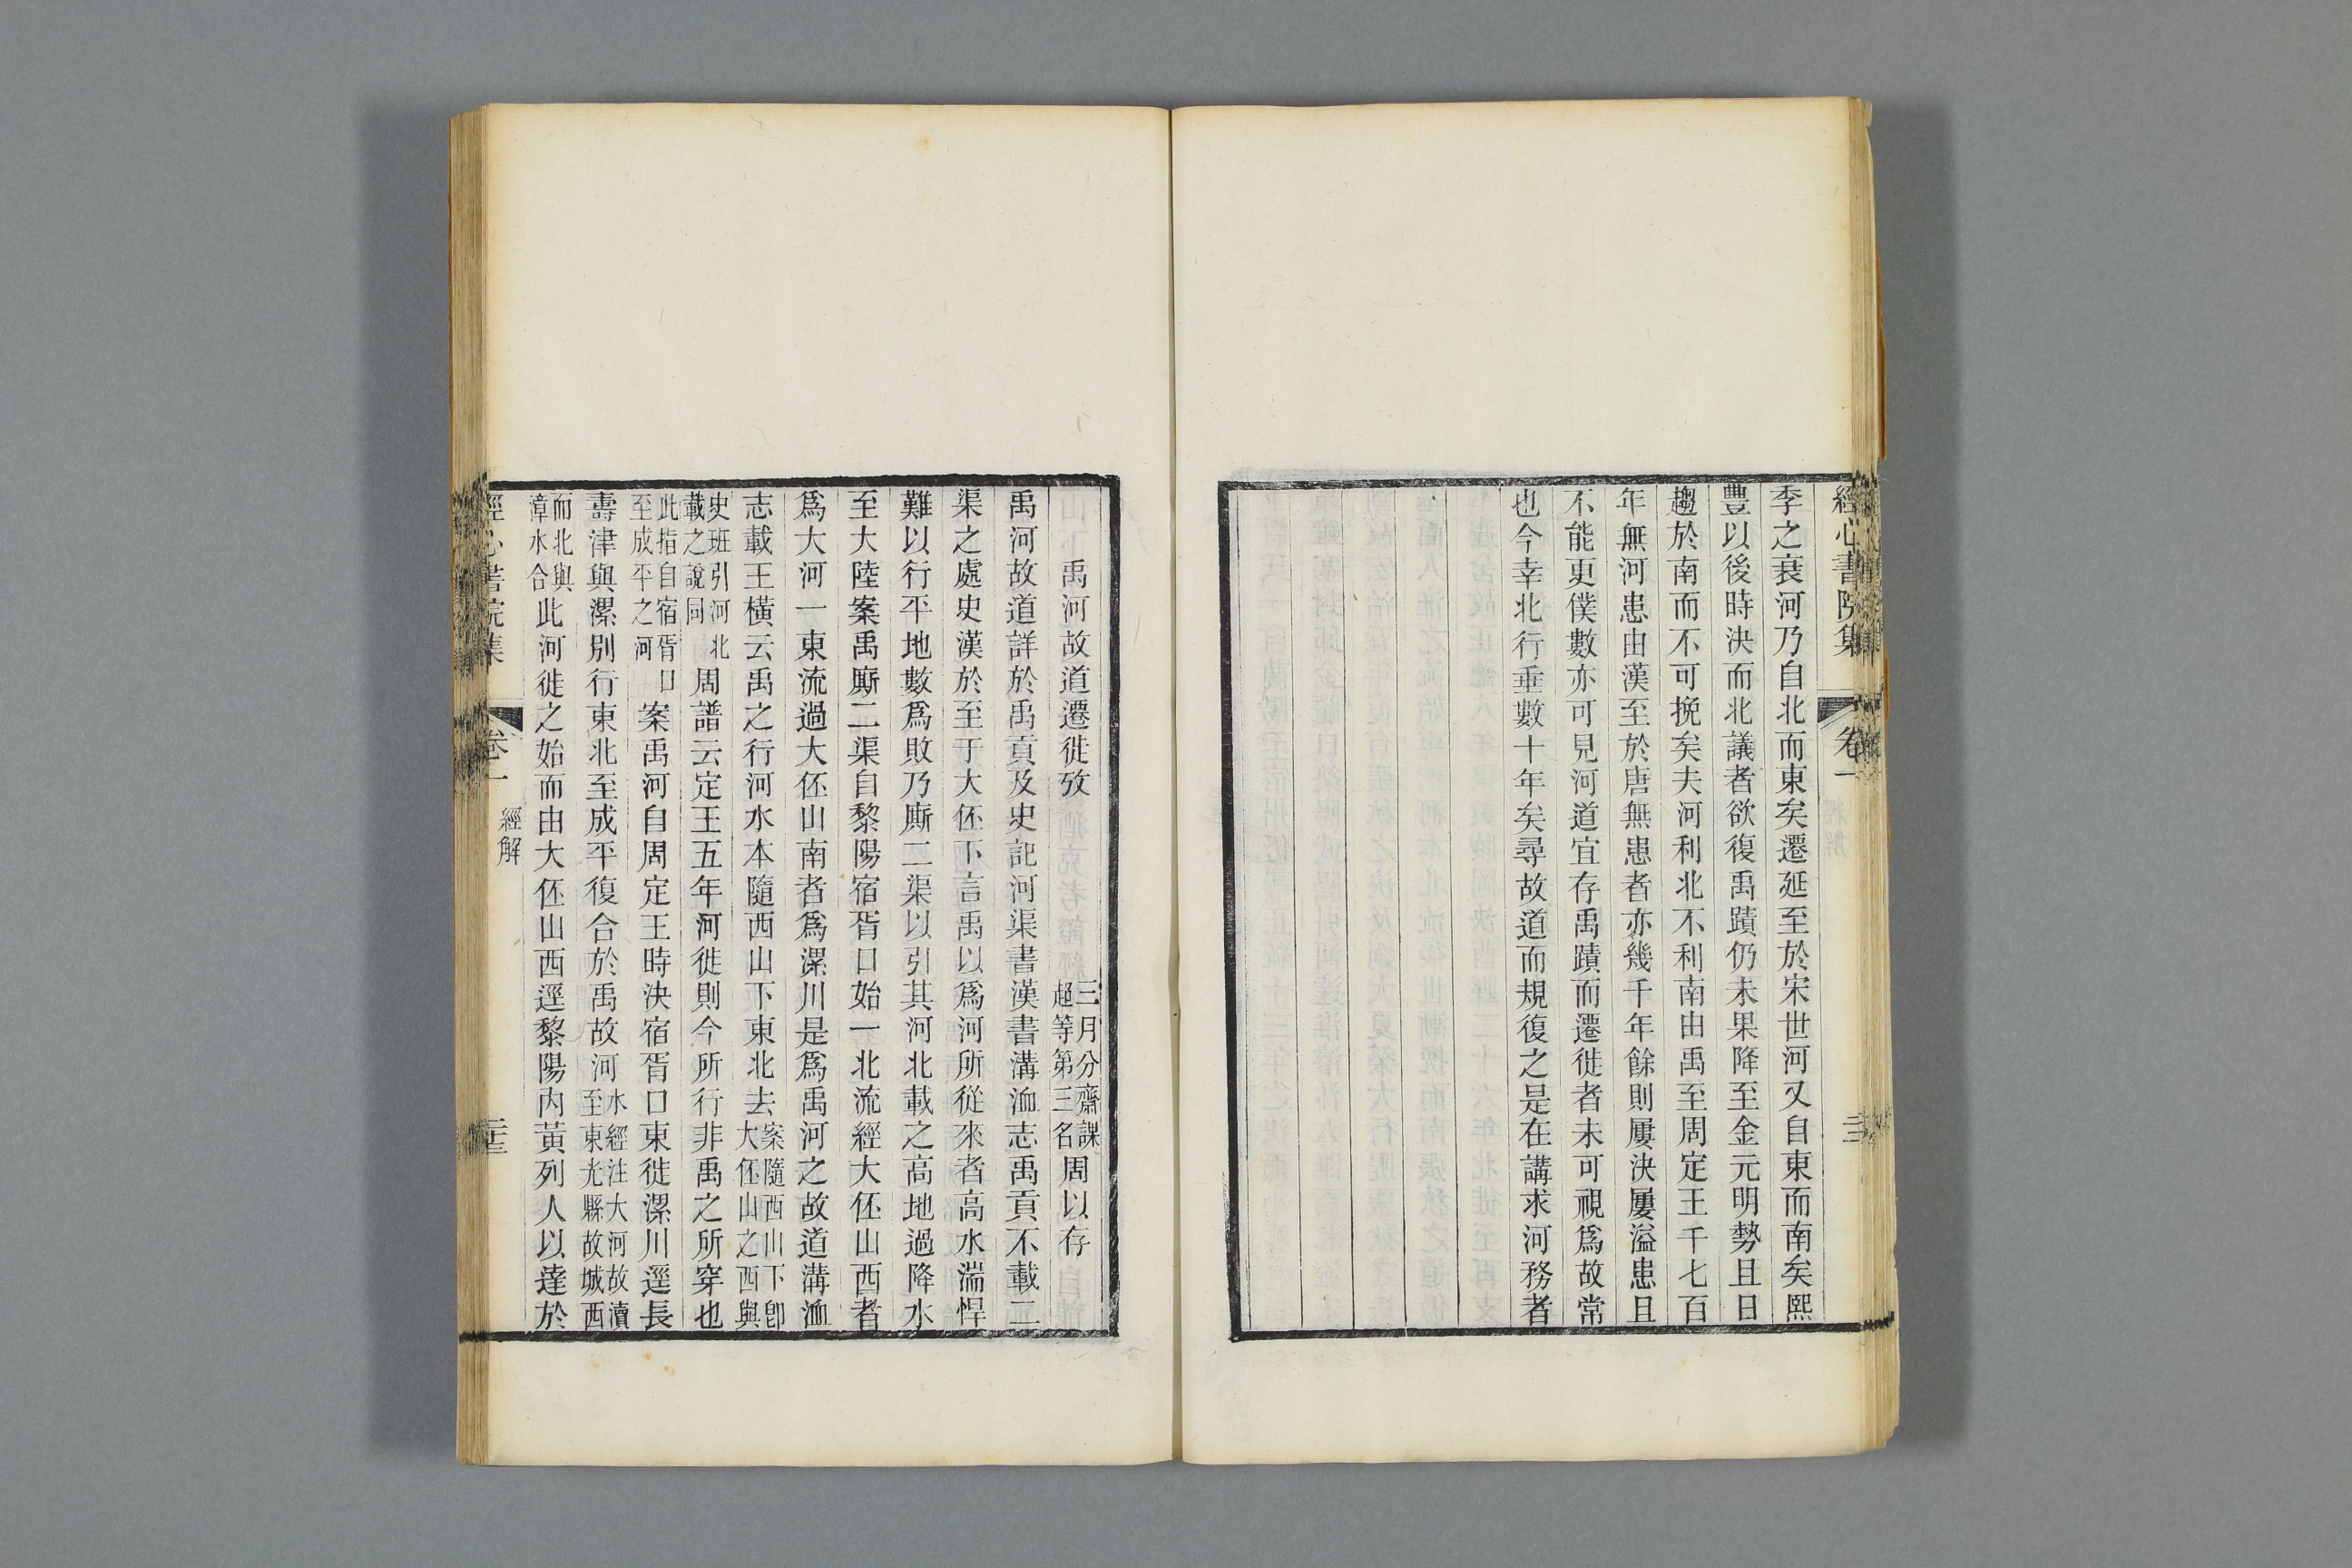 經心書院集 卷一
季之衰河乃自北而東矣遷延至於宋世河又自東而南矣熙
豐以後時決而北議者欲復禹蹟仍未果降至金元明勢且日
趨於南而不可挽矣夫河利北不利南由禹至周定王千七百
年無河患由漢至於唐無患者亦幾千年餘則屢決屢溢患且
不能更僕數亦可見河道宜存禹蹟而遷徙者未可視爲故常
也今幸北行垂數十年矣尋故道而規復之是在講求河務者
禹河故道遷徙攷
三月分齋課
超等第三名
周以存
禹河故道詳於禹貢及史記河渠書漢書溝洫志禹貢不載二
渠之處史漢於至于大伾下言禹以爲河所從來者高水湍悍
難以行平地數爲敗乃廝二渠以引其河北載之高地過降水
至大陸案禹廝二渠自黎陽宿胥口始一北流經大伾山西者
爲大河一東流過大伾山南者爲漯川是爲禹河之故道溝洫
志載王橫云禹之行河水本隨西山下東北去
案隨西山下卽
大伾山之西與
史班引河北
載之說同
周譜云定王五年河徙則今所行非禹之所穿也
此指自宿胥口
至成平之河
案禹河自周定王時決宿胥口東徙漯川逕長
壽津與漯別行東北至成平復合於禹故河
水經注大河故瀆
至東光縣故城西
而北與
漳水合
此河徙之始而由大伾山西逕黎陽內黃列人以達於
經心書院集 卷一 經解